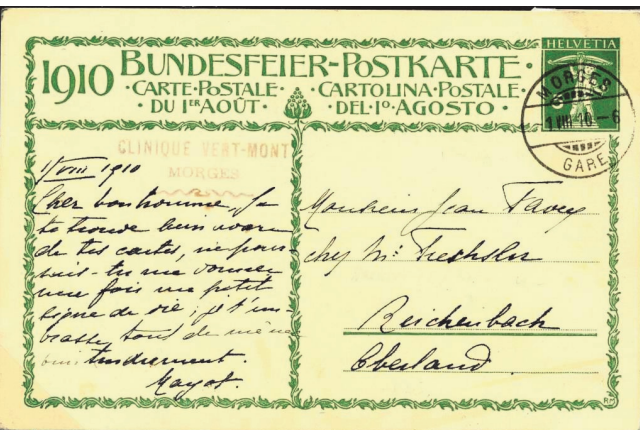 1910 BUNDESFEIER-POSTKARTE
CARTE-POSTALE · CARTOLINA-POSTALE
DU 1ER AOÛT · DEL 1O AGOSTO
HELVETIA
MORGES
1.VIII.10.-6
GARE
CLINIQUE VERT-MONT
MORGES
1/VIII 1910
Cher bonhomme, Je
te trouve bien avare
de tes cartes, ne pour-
rais-tu me donner
une fois un petit
signe de vie; je t'em-
brasse tout de même
bien tendrement.
Monsieur Jean Favey
chez Mr
Reichenbach
Oberland
RM